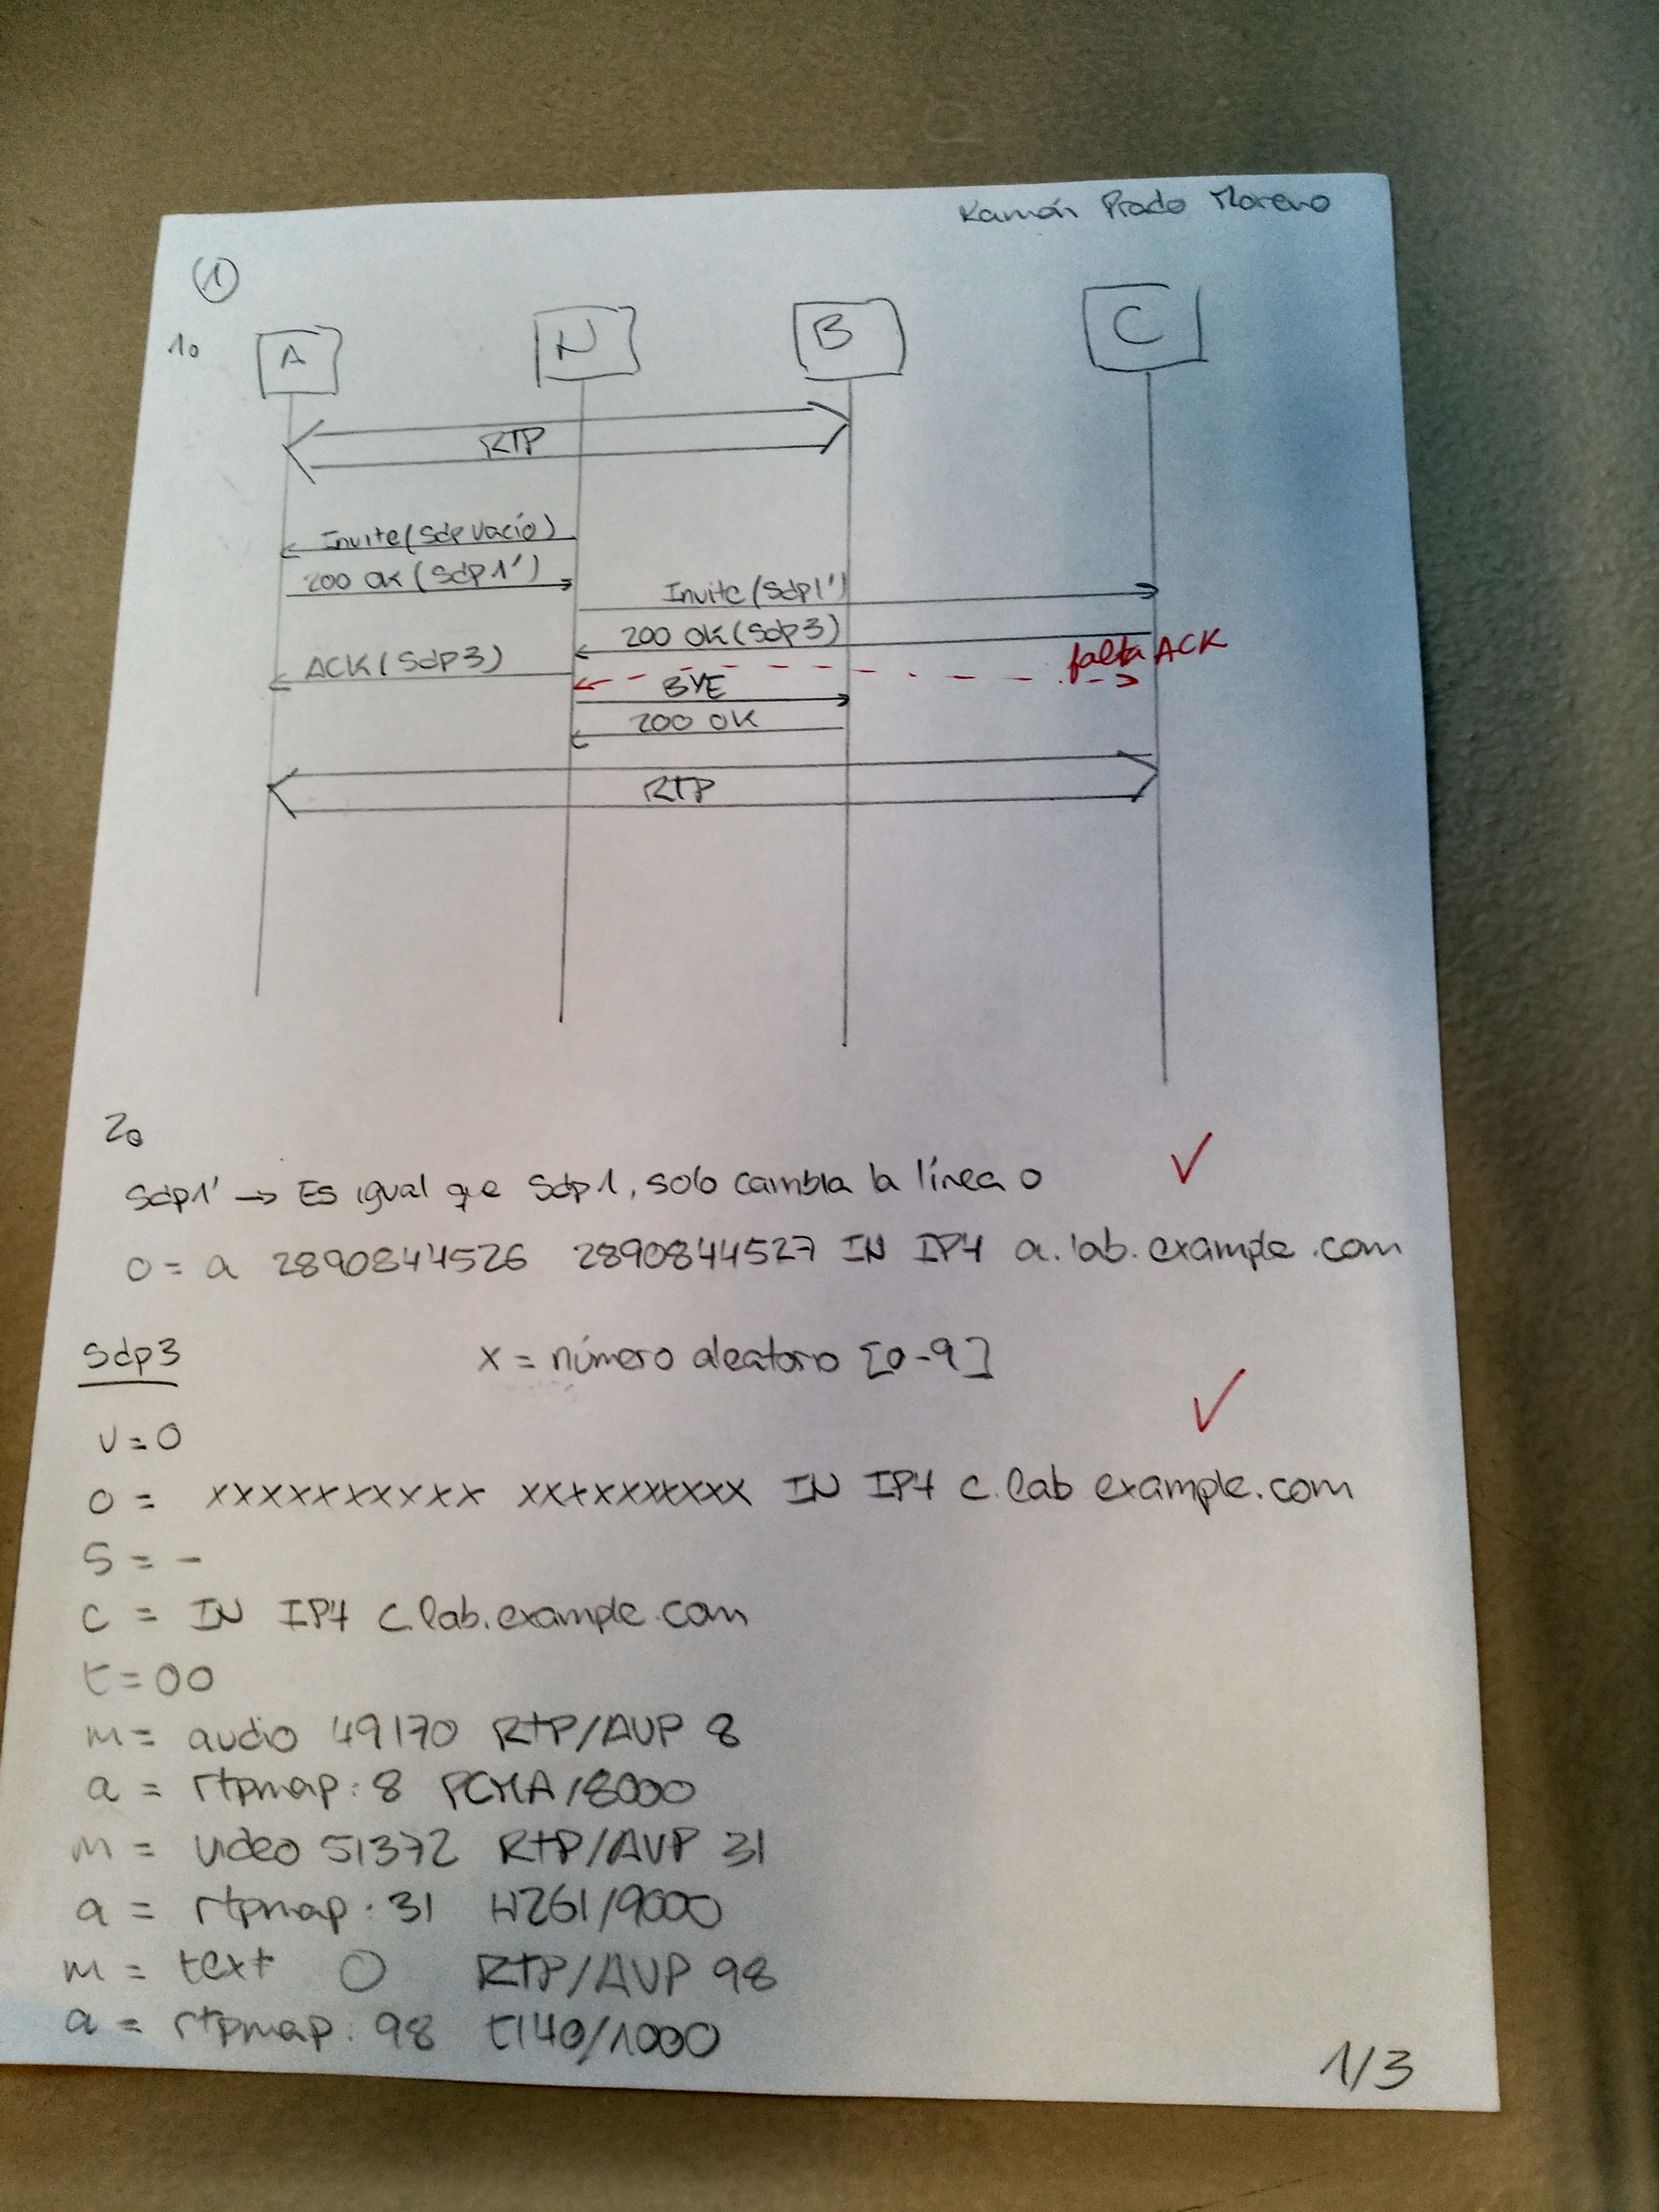 Ramón Prado Moreno
1
1o
A
N
B
C
RTP
Invite(Sdp vacío)
200 OK (Sdp1')
Invite(Sdp1')
200 OK(Sdp3)
ACK(Sdp3)
falta ACK
BYE
200 OK
RTP
2o
Sdp1' → Es igual que Sdp1, solo cambia la línea o
o = a 2890844526 2890844527 IN IP4 a.lab.example.com
Sdp3
x = número aleatorio [0-9]
v=0
o = xxxxxxxxxx xxxxxxxxxx IN IP4 c.lab example.com
S = -
C = IN IP4 c.lab.example.com
t=00
m= audio 49170 RTP/AVP 8
a = rtpmap:8 PCMA/8000
m = video 51372 RTP/AVP 31
a = rtpmap:31 H261/9000
m = text 0 RTP/AVP 98
a = rtpmap:98 t140/1000
1/3